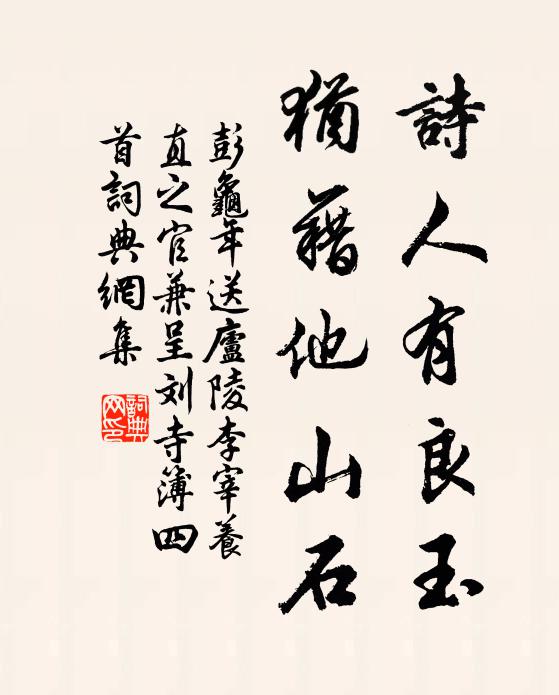 詩人有良玉
猶藉他山石
彭龜年送廬陵李宰養
直之官兼呈刘寺簿四
首詞典網集
詞典网印